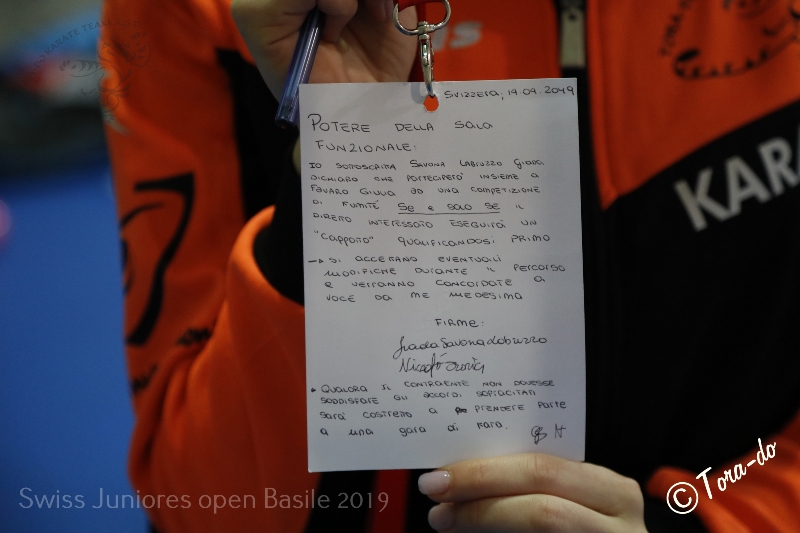 KARATE TEAM
SVIZZERA, 14.09.2019
POTERE DELLA SALA
FUNZIONALE:
IO SOTTOSCRITTA SAVONA LABRUZZO GIADA
DICHIARO CHE PARTECIPERÒ INSIEME A
FAVARO GIULIA AD UNA COMPETIZIONE
DI KUMITÈ SE E SOLO SE IL
DIRETTO INTERESSATO ESEGUIRÀ UN
"CAPPOTTO" QUALIFICANDOSI PRIMO
→ SI ACCETTANO EVENTUALI
MODIFICHE DURANTE IL PERCORSO
E VERRANNO CONCORDATE A
VOCE DA ME MEDESIMA
FIRME:
Giada Savona Labruzzo
Nicolò
• QUALORA IL CONTRAENTE NON DOVESSE
SODDISFARE GLI ACCORDI SOPRACITATI
SARÀ COSTRETTO A PRENDERE PARTE
A UNA GARA DI KATA.
KARA
Swiss Juniores open Basile 2019
© Tora-do